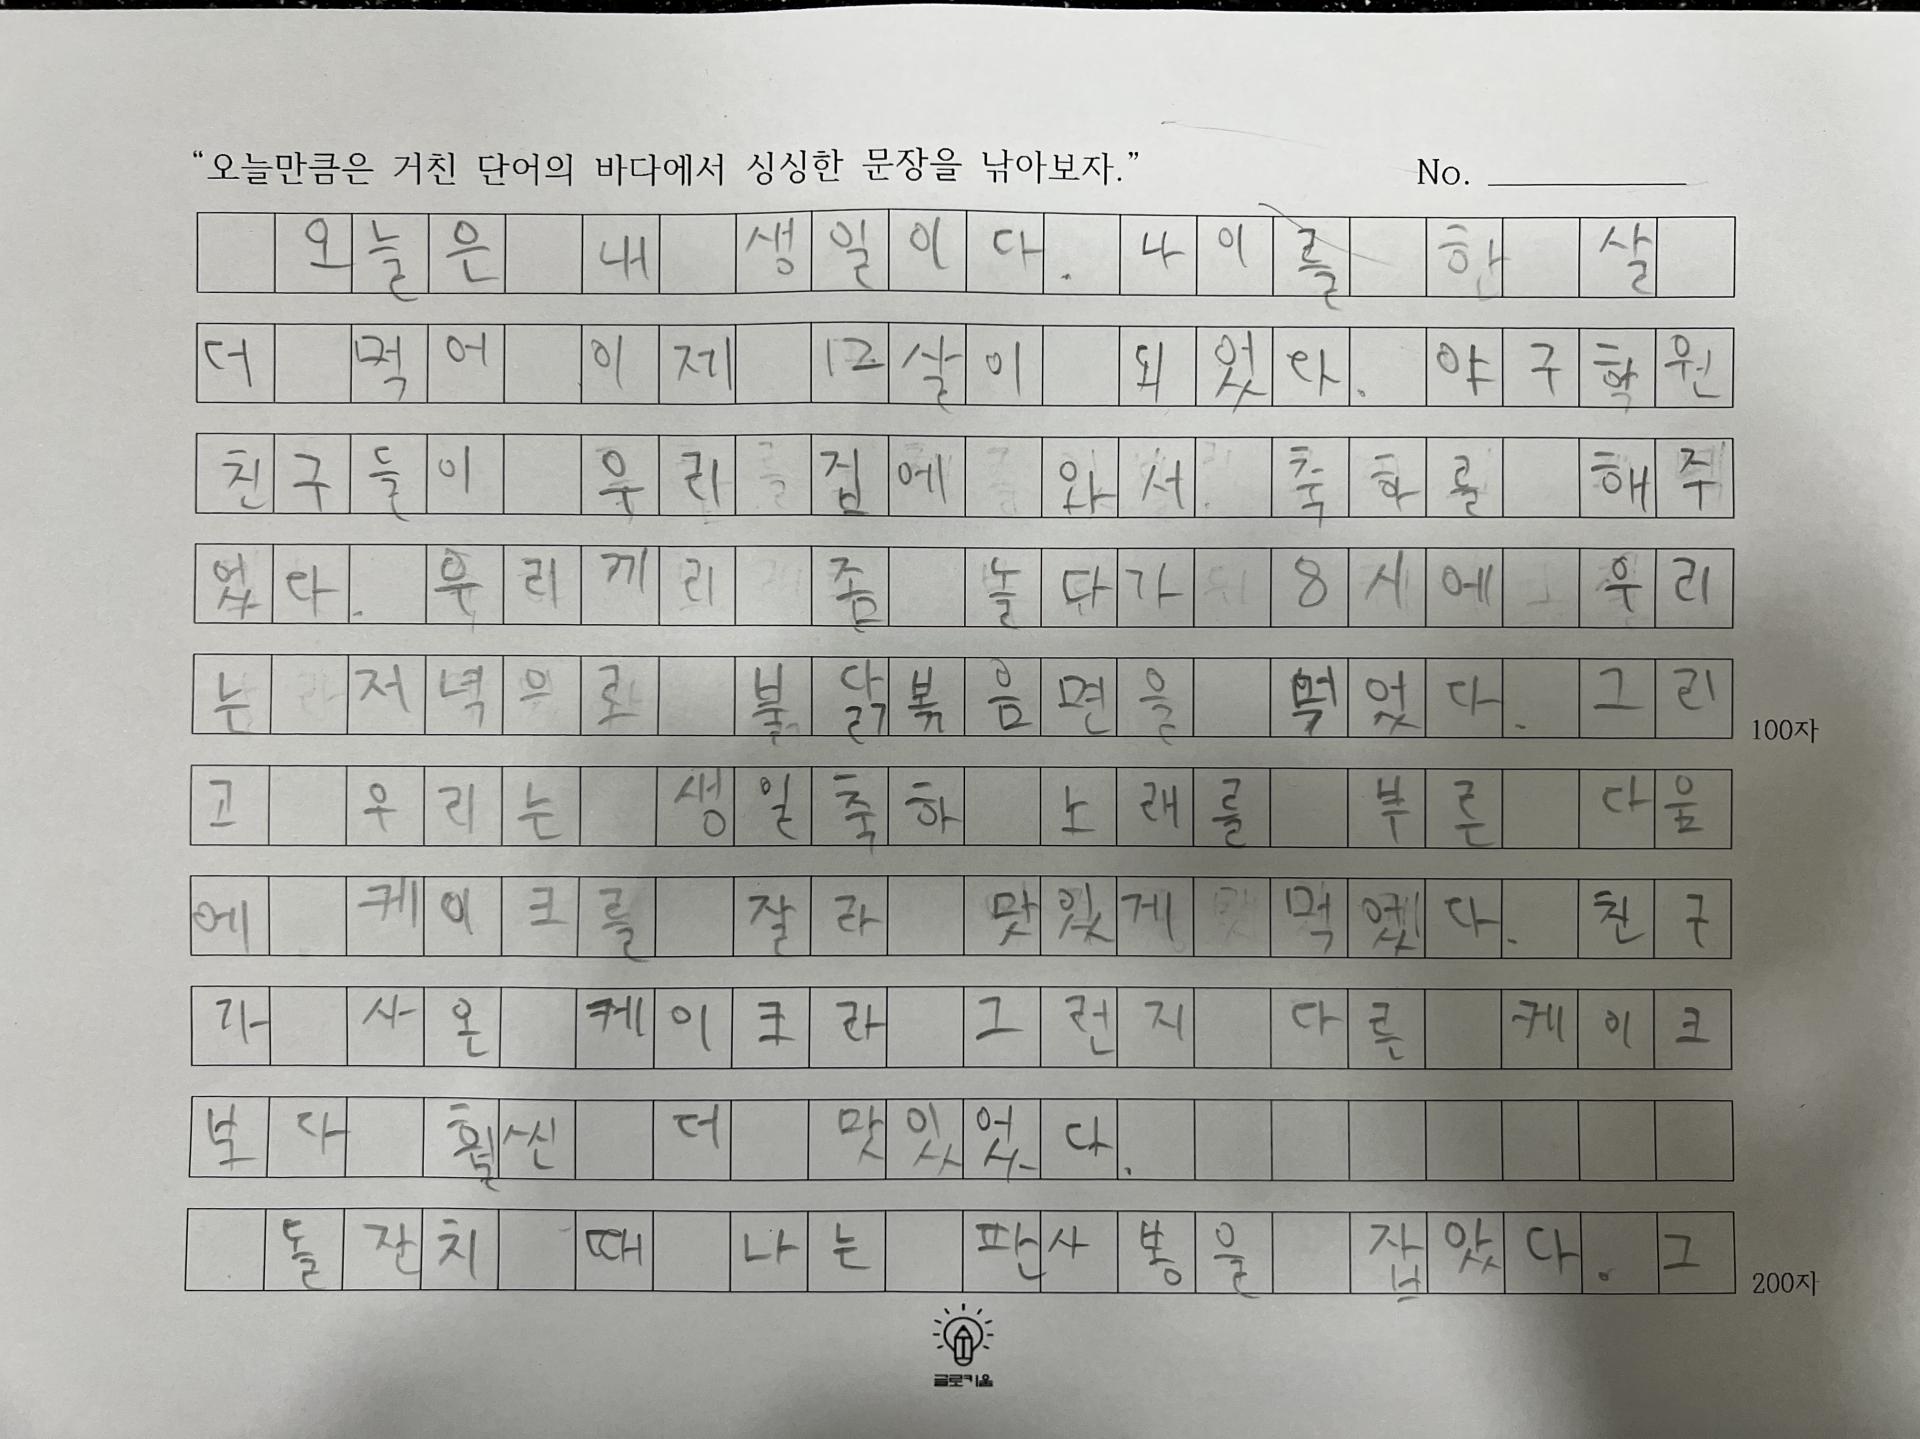 “오늘만큼은 거친 단어의 바다에서 싱싱한 문장을 낚아보자.” No.
오늘은 내 생일이다. 나이를 한 살
더 먹어 이제 12살이 되었다. 야구학원
친구들이 우리 집에 와서 축하를 해주
었다. 우리끼리 좀 놀다가 8시에 우리
는 저녁으로 불닭볶음면을 먹었다. 그리
100자
고 우리는 생일축하 노래를 부른 다음
에 케이크를 잘라 맛있게 먹었다. 친구
가 사온 케이크라 그런지 다른 케이크
보다 훨씬 더 맛있었다.
돌잔치 때 나는 판사봉을 잡았다. 그
200자
글로키움